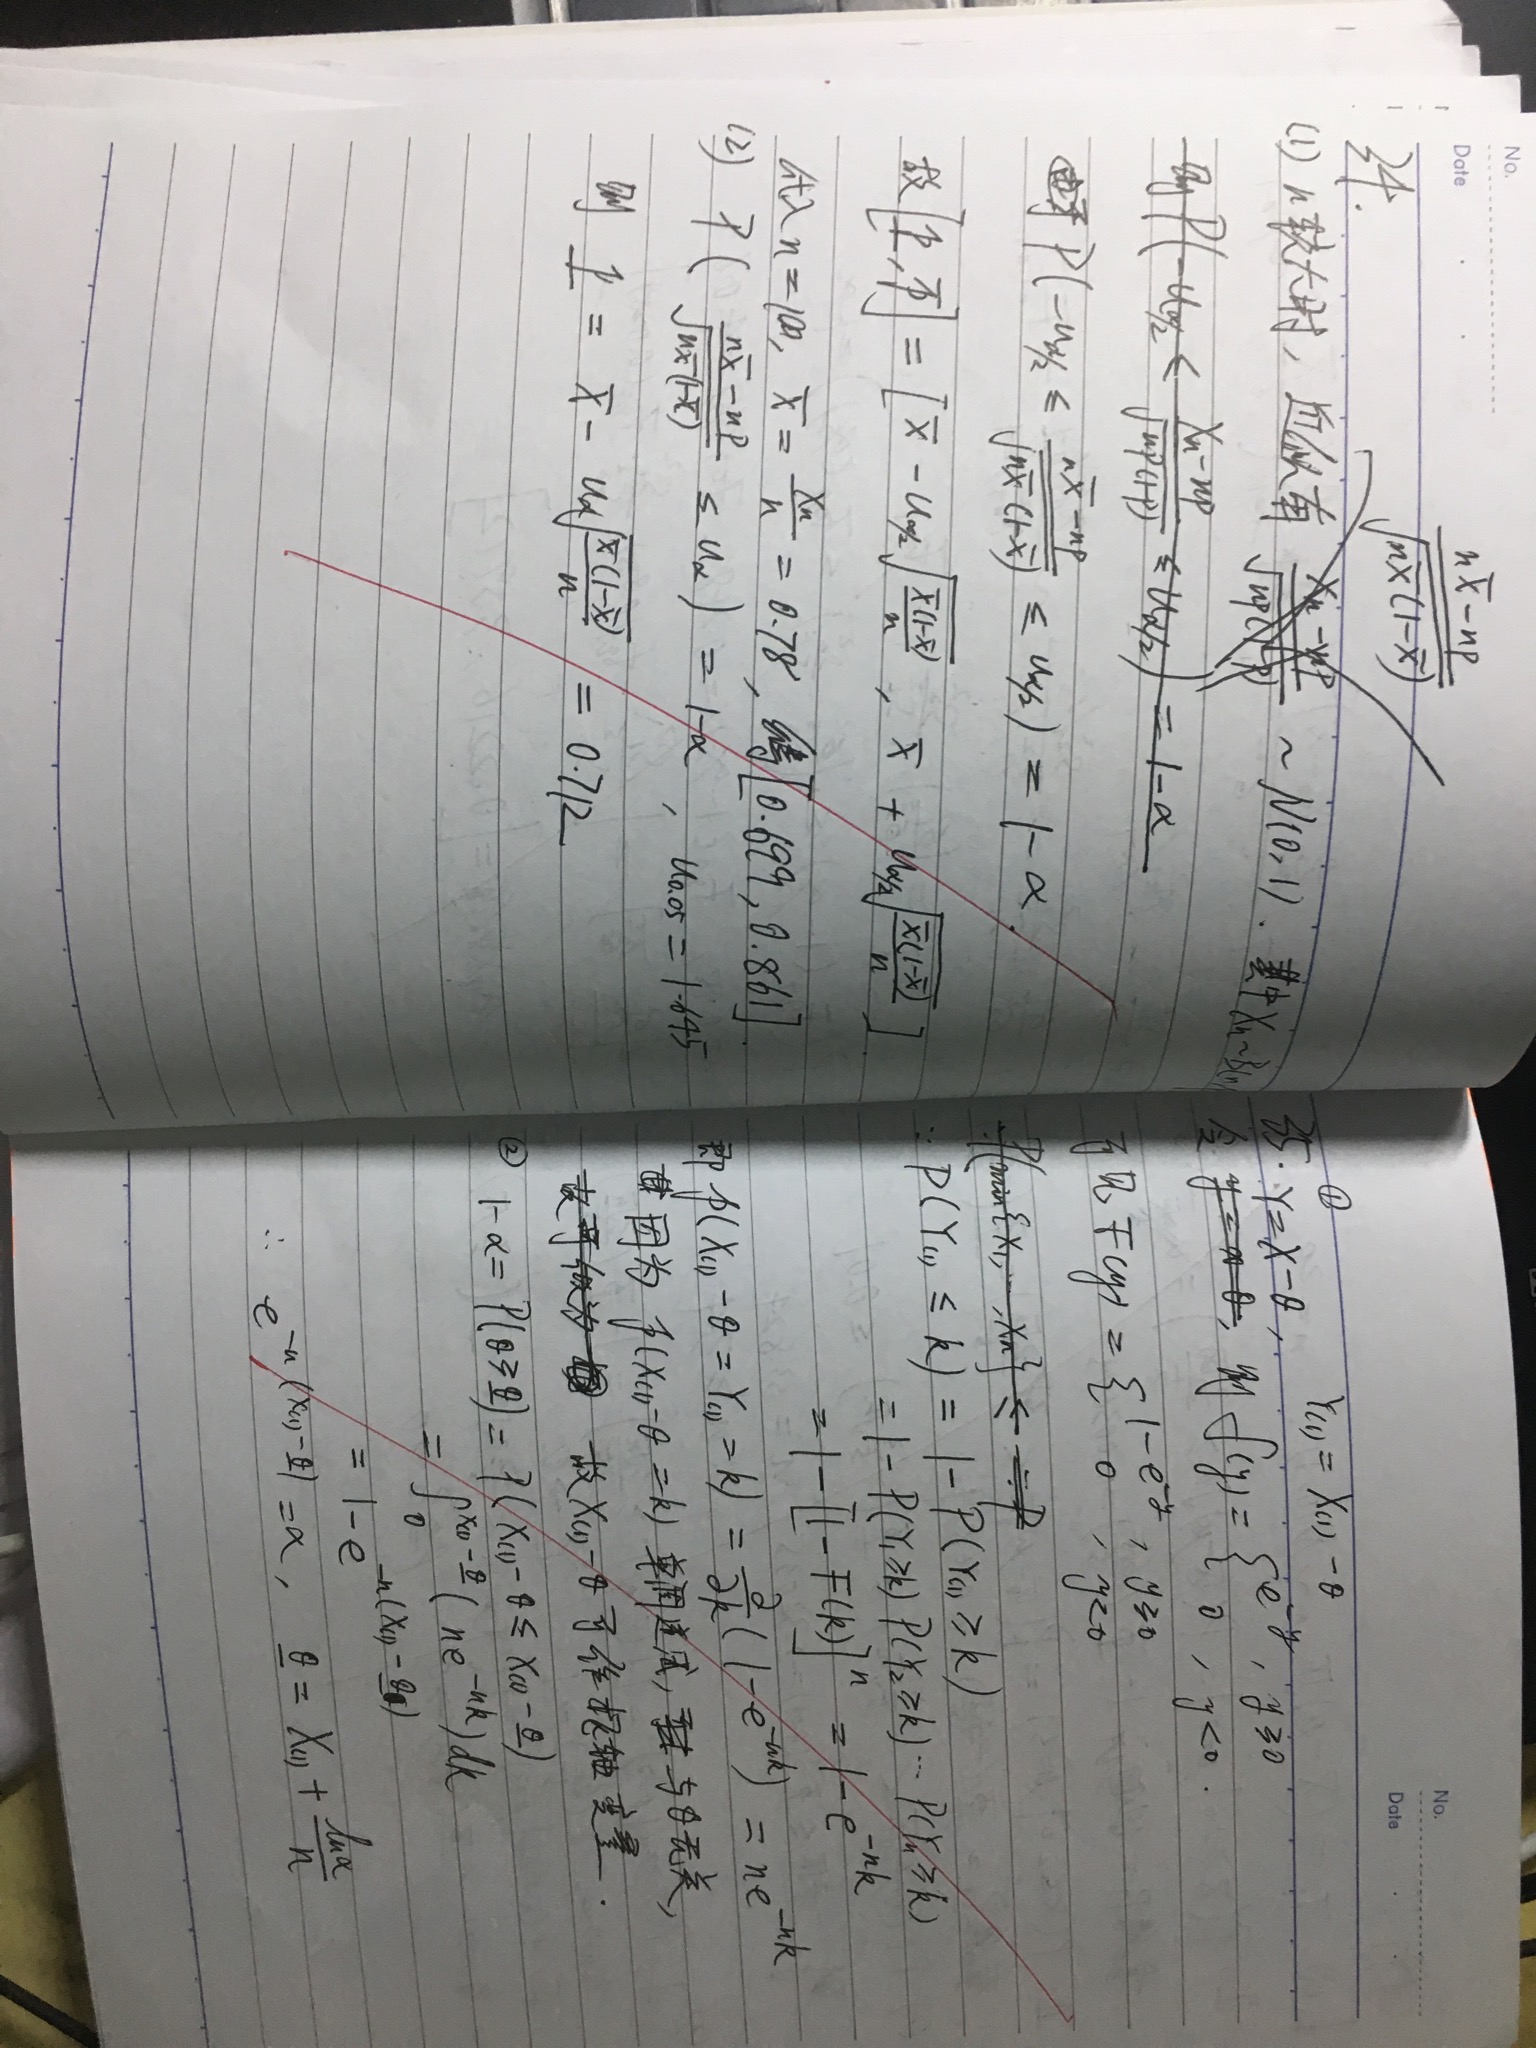 No.
Date
24.
nX̄-np / √(nX̄(1-X̄))
(1) n较大时, 近似有 Xn-np / √(np(1-p)) ~ N(0,1). 其中Xn~B(n,
则P(-uα/2 ≤ Xn-np / √(np(1-p)) ≤ uα/2) = 1-α
由于 P(-uα/2 ≤ nX̄-np / √(nX̄(1-X̄)) ≤ uα/2) = 1-α.
故[p̲, p̄] = [X̄ - uα/2 √(X̄(1-X̄)/n), X̄ + uα/2 √(X̄(1-X̄)/n)]
代入n=100, X̄ = Xn/n = 0.78, 得[0.699, 0.861]
(2) P( nX̄-np / √(nX̄(1-X̄)) ≤ uα) = 1-α, u0.05 = 1.645
则 p̲ = X̄ - uα √(X̄(1-X̄)/n) = 0.712
No.
Date
① Y(1) = X(1) - θ
25. Y=X-θ,
令 y=x-θ, 则 f(y) = { e^-y, y≥0
0, y<0.
可知 F(y) = { 1-e^-y, y≥0
0, y<0
∴P(min{X1,…,Xn} ≤
∴ P(Y(1) ≤ k) = 1-P(Y(1) ≥ k)
= 1-P(Y1≥k) P(Y2≥k)… P(Yn≥k)
= 1-[1-F(k)]^n = 1-e^-nk
即 p(X(1)-θ=Y(1)=k) = ∂/∂k (1-e^-nk) = ne^-nk
因为 p(X(1)-θ=k) 单调递减, 且 与θ无关,
故可做为 故X(1)-θ 可作枢轴变量.
② 1-α = P(θ≥θ̲) = P(X(1)-θ ≤ X(1)-θ̲)
= ∫₀^(X(1)-θ̲) (ne^-nk)dk
= 1-e^-n(X(1)-θ̲)
∴ e^-n(X(1)-θ̲) = α, θ̲ = X(1) + lnα/n